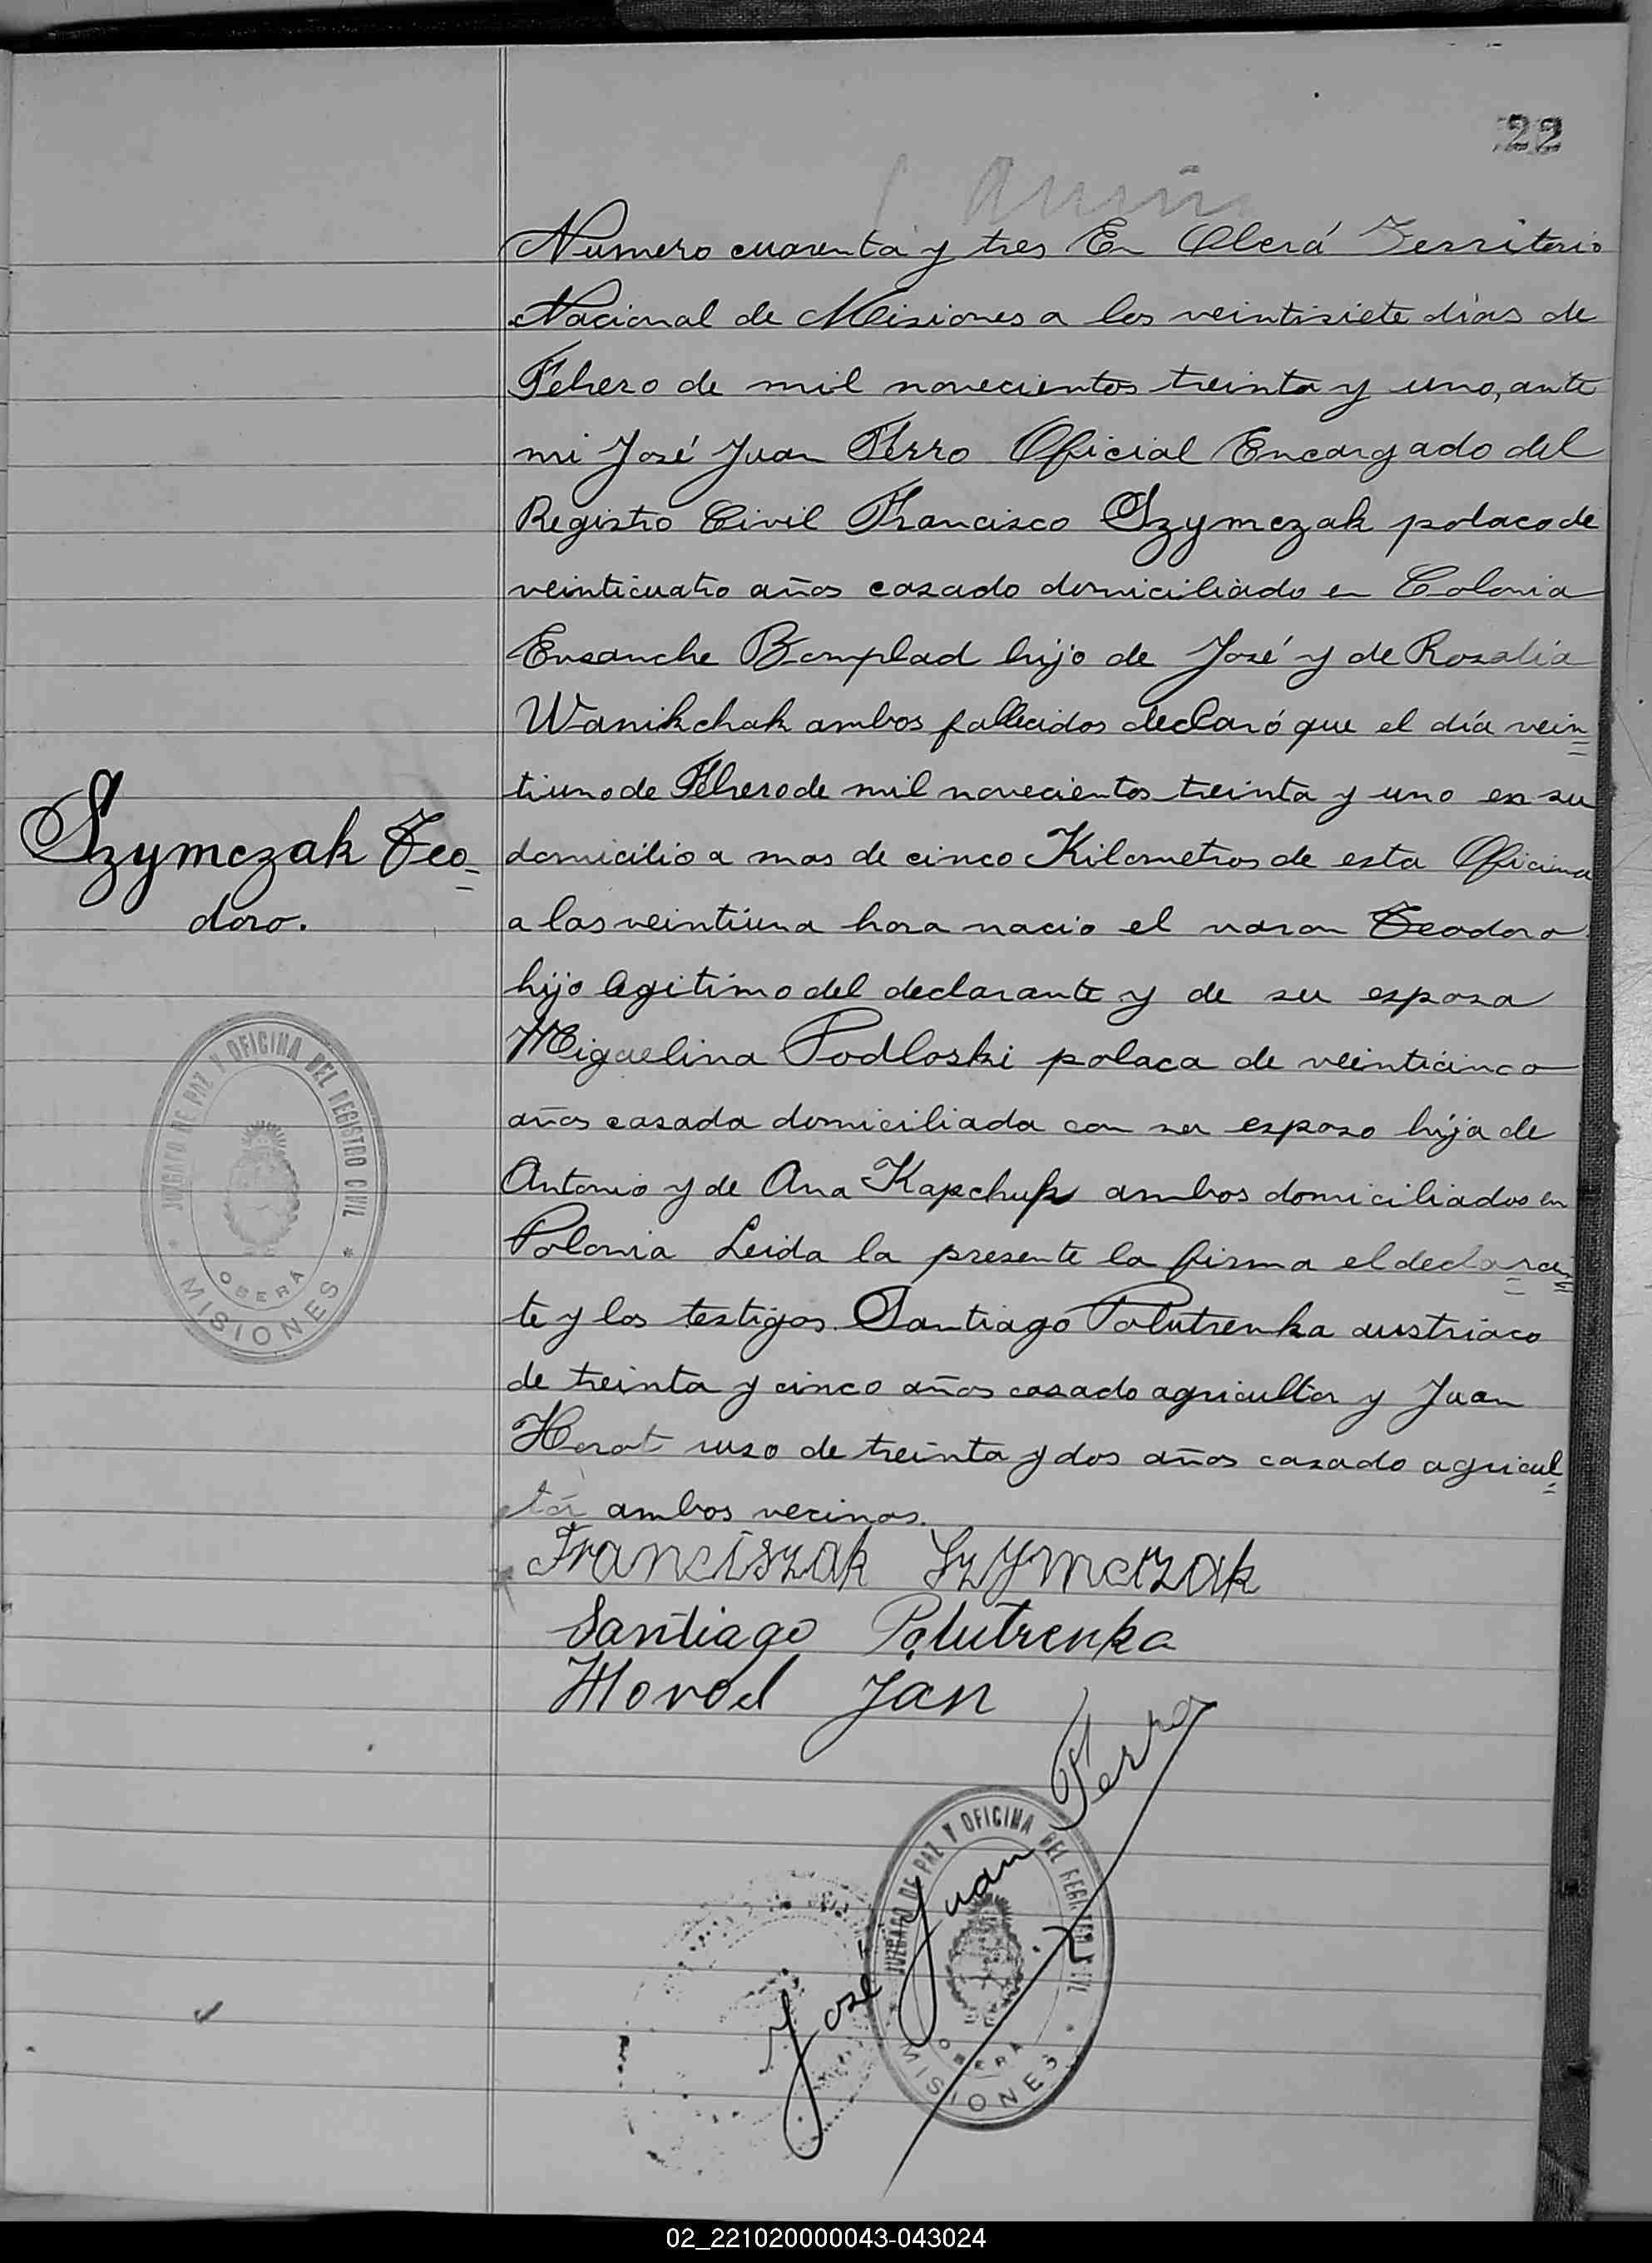 22
Numero cuarenta y tres En Oberá Territorio
Nacional de Misiones a los veintisiete días de
Febrero de mil novecientos treinta y uno, ante
mi José Juan Ferro Oficial Encargado del
Registro Civil Francisco Szymczak polaco de
veinticuatro años casado domiciliado en Colonia
Ensanche Bomplad hijo de José y de Rosalia
Wanikchak ambos fallecidos declaró que el día vein=
tiuno de Febrero de mil novecientos treinta y uno en su
Szymczak Teo=
doro.
domicilio a mas de cinco Kilometros de esta Oficina
a las veintiuna hora nacio el varon Teodoro
hijo legitimo del declarante y de su esposa
Miguelina Podloski polaca de veinticinco
años casada domiciliada con su esposo hija de
Antonio y de Ana Kapchuk ambos domiciliados en
Polonia Leida la presente la firma el declaran=
te y los testigos Santiago Polutrenka austriaco
de treinta y cinco años casado agricultor y Juan
Horot ruso de treinta y dos años casado agricul=
tor ambos vecinos.
Franciszak Szymczak
Santiago Polutrenka
Horod Jan
José Juan Ferro
JUZGADO DE PAZ Y OFICINA DEL REGISTRO CIVIL
OBERÁ
* MISIONES *
JUZGADO DE PAZ Y OFICINA DEL REGISTRO CIVIL
OBERÁ
* MISIONES *
02_221020000043-043024